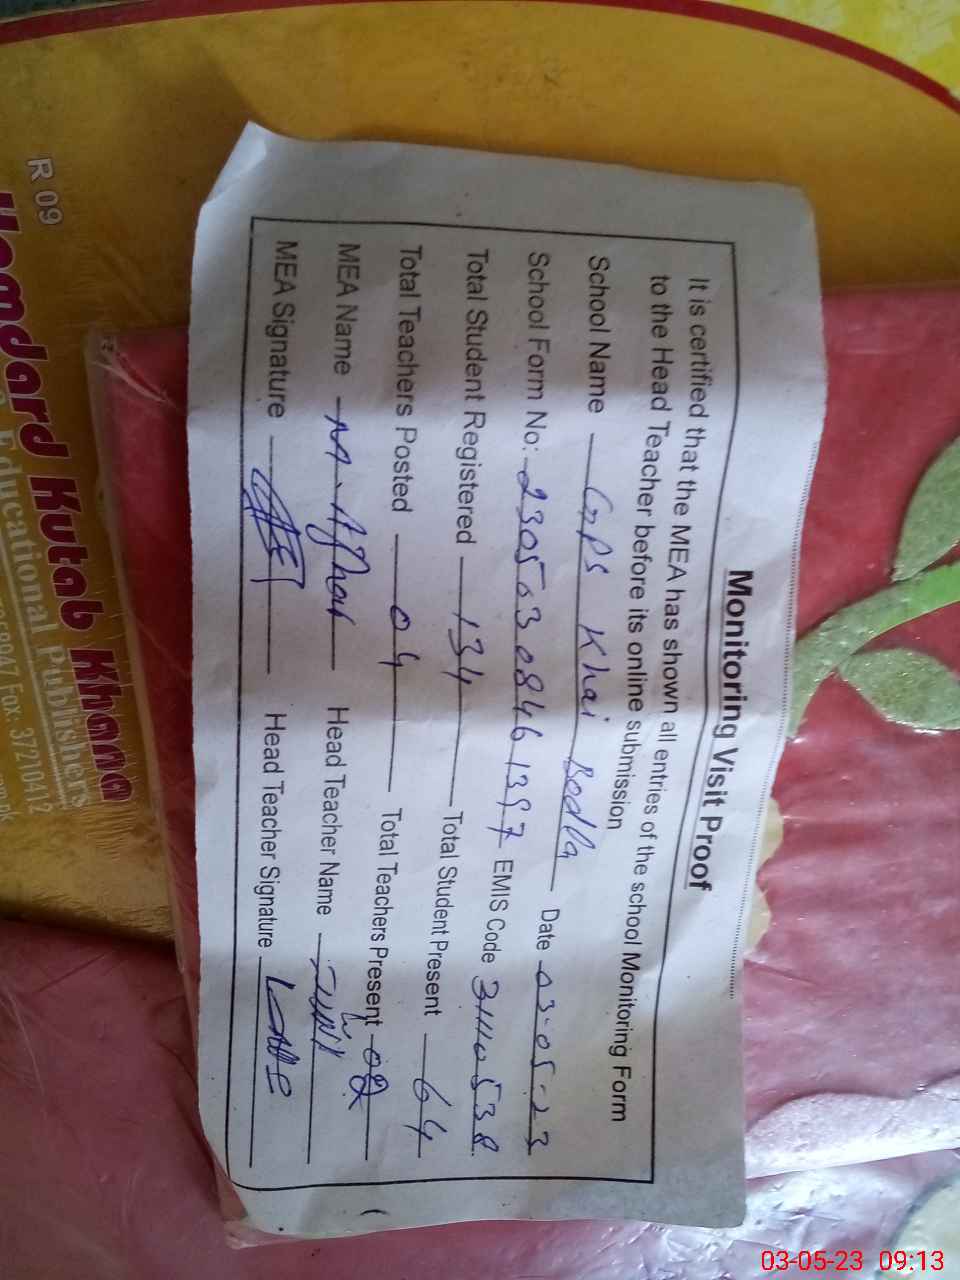 Monitoring Visit Proof
It is certified that the MEA has shown all entries of the school Monitoring Form
to the Head Teacher before its online submission
School Name GPS Khai Bodla Date 03-05-23
School Form No: 23050308461397 EMIS Code 31110538
Total Student Registered 134 Total Student Present 64
Total Teachers Posted 04 Total Teachers Present 02
MEA Name M. Azhar Head Teacher Name
MEA Signature Head Teacher Signature
R 09
Hamdard Kutab Khana
Educational Publishers
Fox: 37210412
03-05-23 09:13